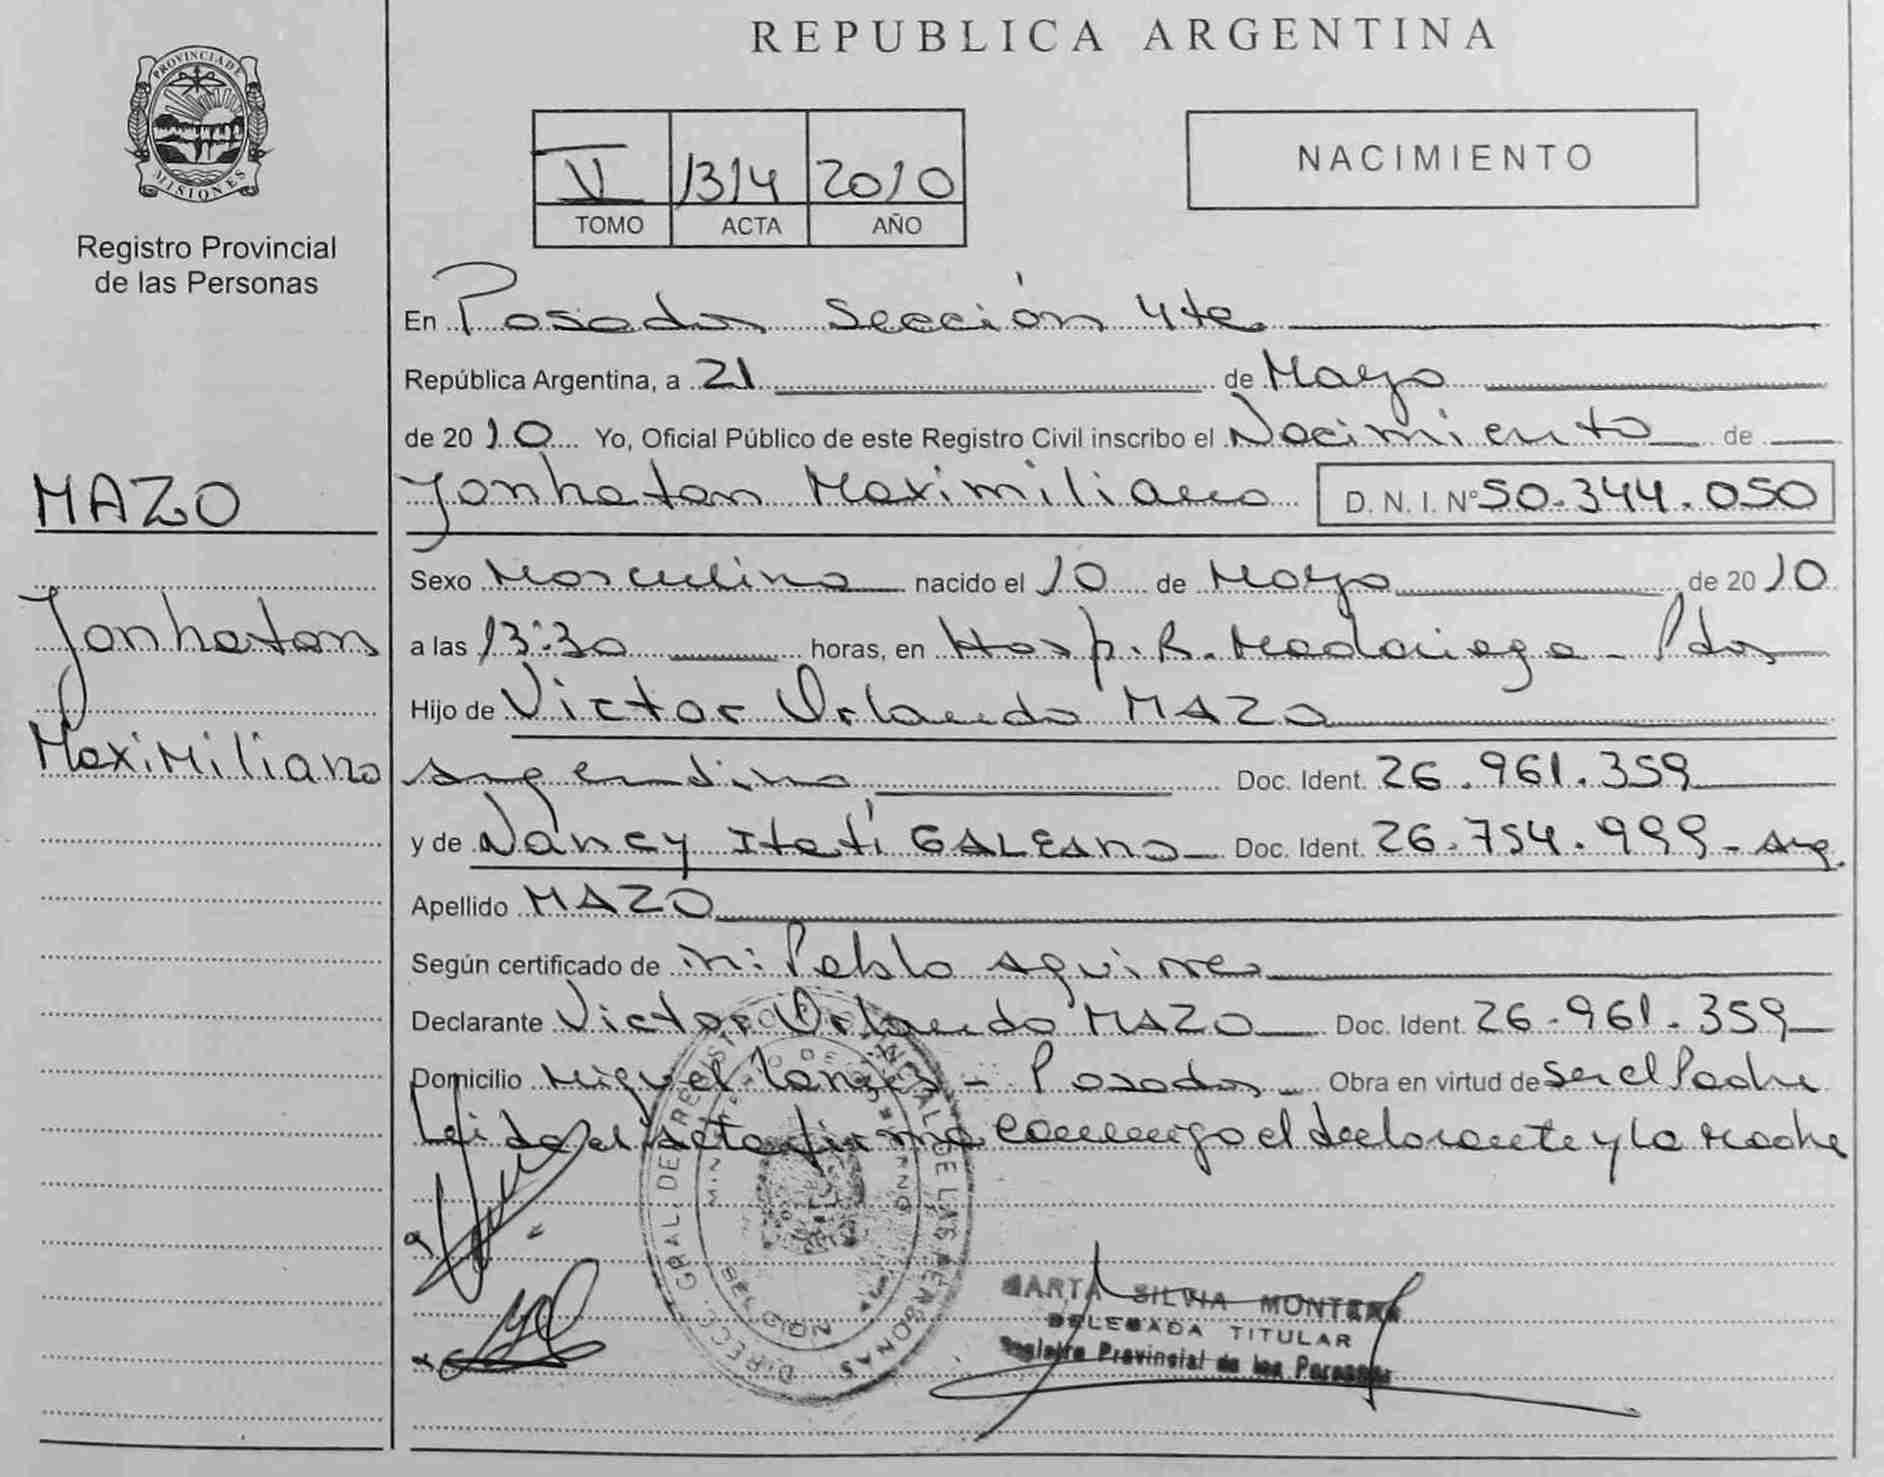 REPUBLICA ARGENTINA
PROVINCIA DE
MISIONES
Registro Provincial
de las Personas
V 1314 2010
TOMO ACTA AÑO
NACIMIENTO
MAZO
Jonhatan
Maximiliano
En Posadas Sección 4ta.
República Argentina, a 21 de Mayo
de 2010 Yo, Oficial Público de este Registro Civil inscribo el Nacimiento de
Jonhatan Maximiliano D. N. I. Nº 50.344.050
Sexo Masculino nacido el 10 de Mayo de 2010
a las 13:30 horas, en Hosp. R. Madariaga - Pdas
Hijo de Victor Orlando MAZO
argentino Doc. Ident. 26.961.359
y de Nancy Itatí GALEANO Doc. Ident. 26.754.999 - Arg.
Apellido MAZO
Según certificado de Pablo Aguirre
Declarante Victor Orlando MAZO Doc. Ident. 26.961.359
Domicilio Miguel - Posadas Obra en virtud de Ser el Padre
Leida el acta firma conmigo el declarante y la madre
DIRECC. GRAL. DE REGISTRO PROVINCIAL DE LAS PERSONAS
MISIONES
MARTA SILVIA MONTERO
DELEGADA TITULAR
Registro Provincial de las Personas